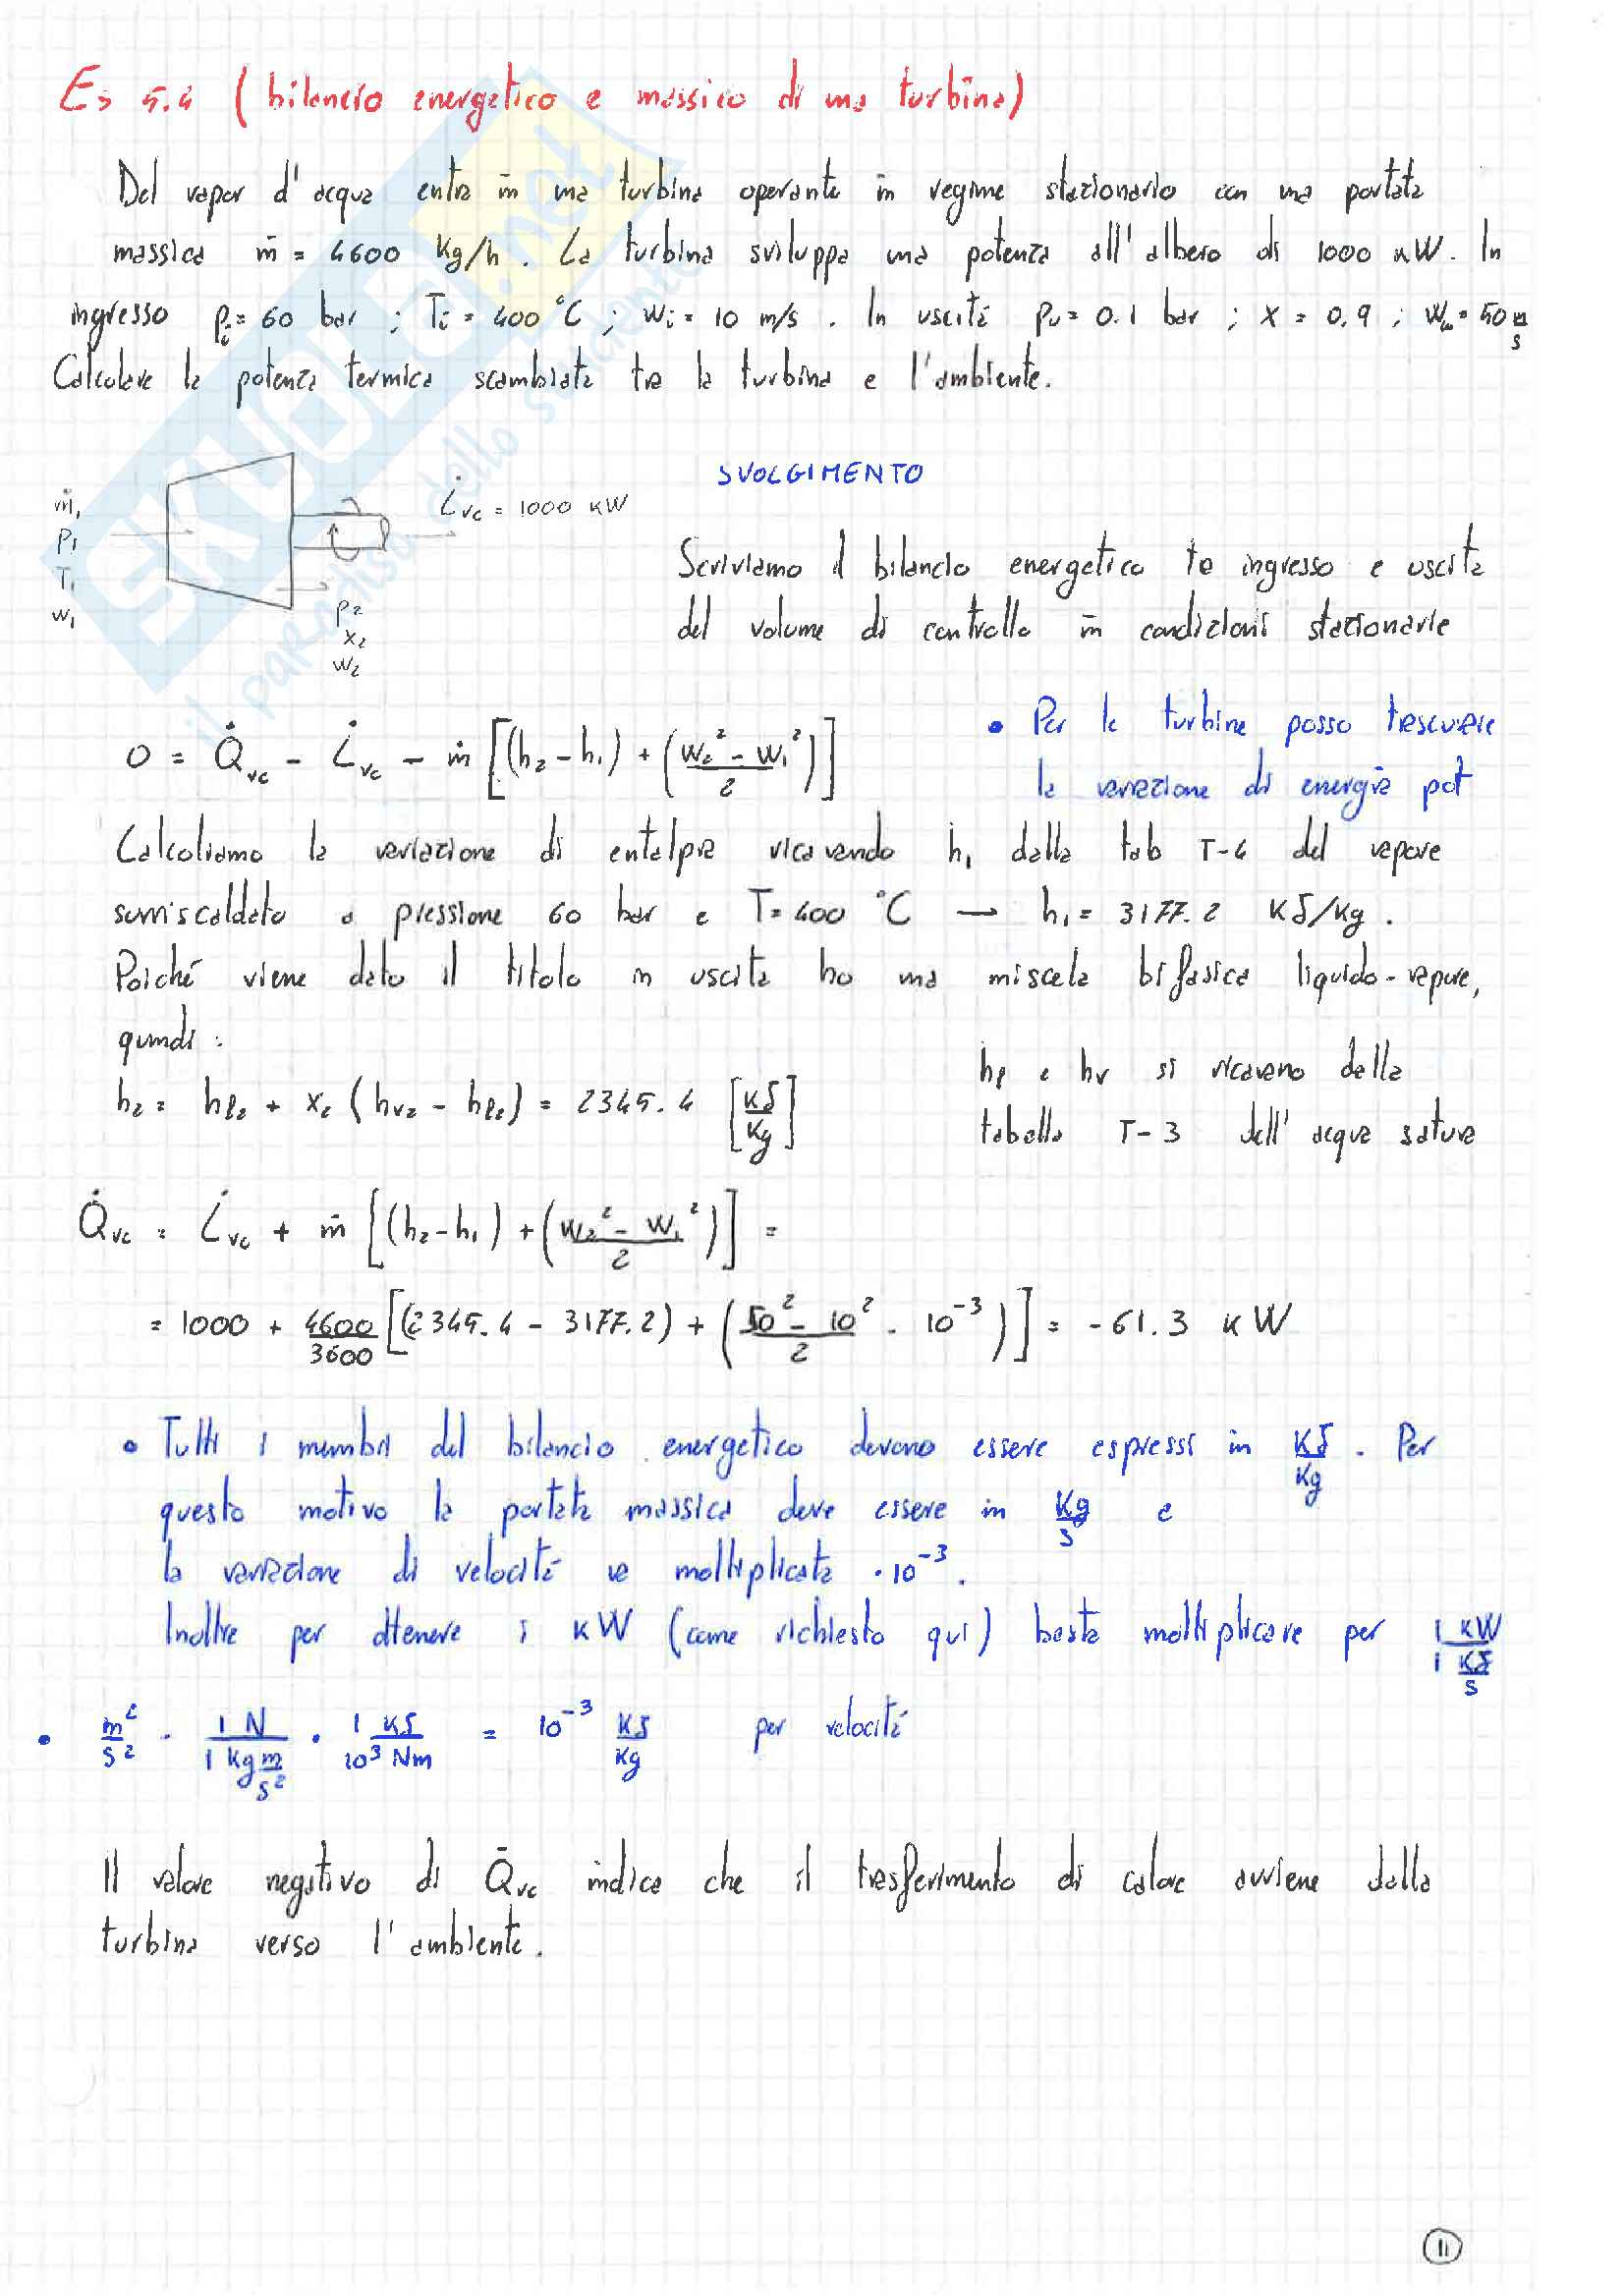 Es 5.4 (bilancio energetico e massico di una turbina)
Del vapor d'acqua entra in una turbina operante in regime stazionario con una portata
massica ṁ = 4600 Kg/h. La turbina sviluppa una potenza all'albero di 1000 kW. In
ingresso pi = 60 bar ; Ti = 400 °C ; wi = 10 m/s. In uscita pu = 0.1 bar ; x = 0.9 ; wu = 50 m/s
Calcolare la potenza termica scambiata tra la turbina e l'ambiente.
SVOLGIMENTO
ṁ1
P1
T1
w1
L̇vc = 1000 kW
P2
x2
w2
Scriviamo il bilancio energetico tra ingresso e uscita
del volume di controllo in condizioni stazionarie
0 = Q̇vc - L̇vc - ṁ [(h2 - h1) + ((w2² - w1²)/2)]
• Per le turbine posso trascurare
la variazione di energia pot
Calcoliamo la variazione di entalpia ricavando h1 dalla tab T-4 del vapore
surriscaldato a pressione 60 bar e T = 400 °C → h1 = 3177.2 KJ/Kg.
Poiché viene dato il titolo in uscita ho una miscela bifasica liquido-vapore,
quindi:
h2 = hl2 + x2 (hv2 - hl2) = 2345.4 [KJ/Kg]
hl e hv si ricavano dalla
tabella T-3 dell'acqua satura
Q̇vc = L̇vc + ṁ [(h2 - h1) + ((w2² - w1²)/2)] =
= 1000 + 4600/3600 [(2345.4 - 3177.2) + ((50² - 10²)/2 · 10⁻³)] = -61.3 kW
• Tutti i membri del bilancio energetico devono essere espressi in KJ/Kg. Per
questo motivo la portata massica deve essere in Kg/s e
la variazione di velocità va moltiplicata ·10⁻³.
Inoltre per ottenere i kW (come richiesto qui) basta moltiplicare per 1 kW / 1 KJ/s
• m²/s² · 1 N / 1 Kg m/s² · 1 KJ / 10³ Nm = 10⁻³ KJ/Kg per velocità
Il valore negativo di Q̇vc indica che il trasferimento di calore avviene dalla
turbina verso l'ambiente.
11
SKUOLA.net
il paradiso dello studente